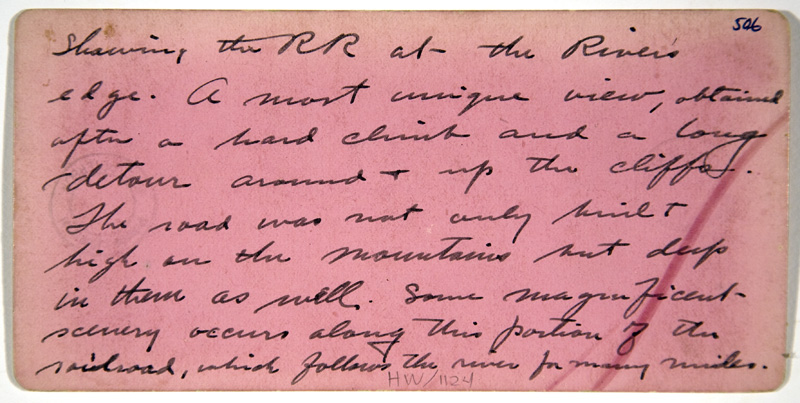 546
Showing the RR at the River's
edge. A most unique view, obtained
after a hard climb and a long
detour around + up the cliffs.
The road was not only built
high on the mountains but deep
in them as well. Some magnificent
scenery occurs along this portion of the
railroad, which follows the river for many miles.
HW/1124